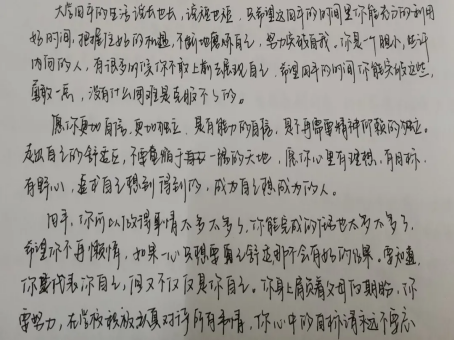 大学四年的生活说长也长，说短也短，只希望这四年的时间里你能充分的利用
好时间，把握住好的机遇，不断地磨练自己，努力突破自我。你是一个胆小，些许
内向的人，有很多的时候你不敢上前去展现自己，希望四年的时间你能突破这些，
勇敢一点，没有什么困难是克服不了的。
愿你更加自信，更加独立，是有能力的自信，是不再需要精神依赖的独立。
走出自己的舒适区，不要蜷缩于一隅的天地，愿你心里有理想，有目标，
有野心，追求自己想到得到的，成为自己想成为的人。
四年，你可以做得事情太多太多了，你能完成的任务也太多太多了，
希望你不再懒惰，如果一心只想要自己舒适那不会有好的结果，要知道，
你是代表你自己，但又不仅仅是你自己。你身上肩负着父母的期盼，你
要努力，在学校该放认真对待所有事情，你心中的目标请永远不要忘